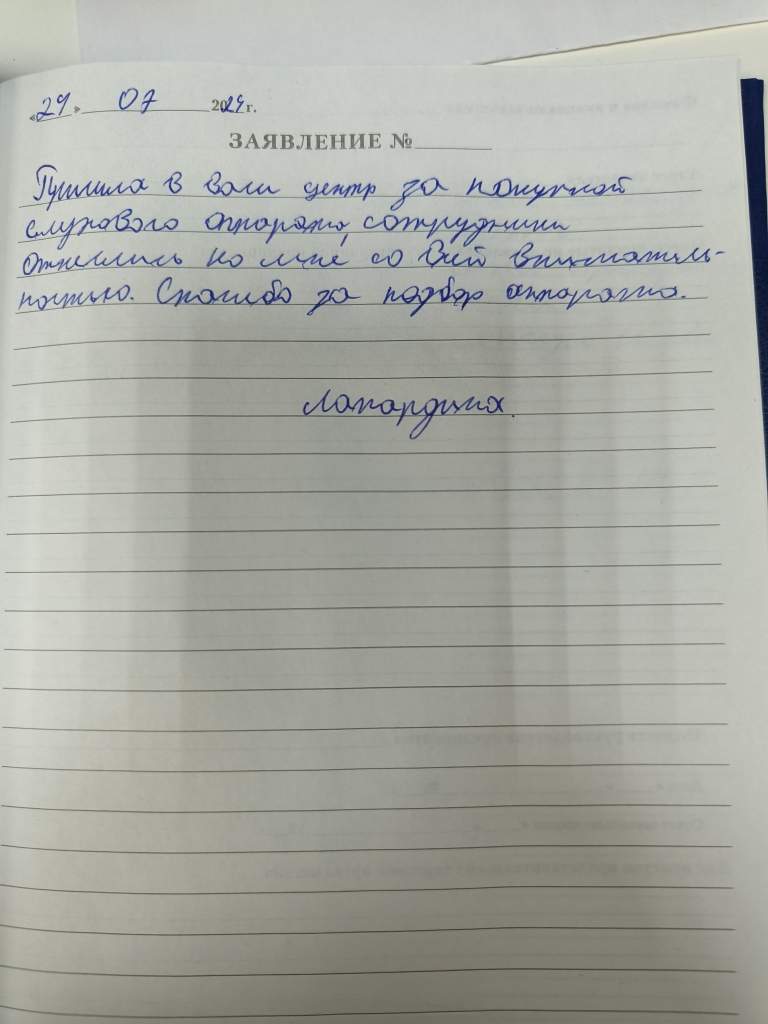 «29» 07 2024 г.
ЗАЯВЛЕНИЕ №
Пришла в ваш центр за покупкой
слухового аппарата, сотрудники
отнеслись ко мне со всей вниматель-
ностью. Спасибо за подбор аппарата.
Лапардина.